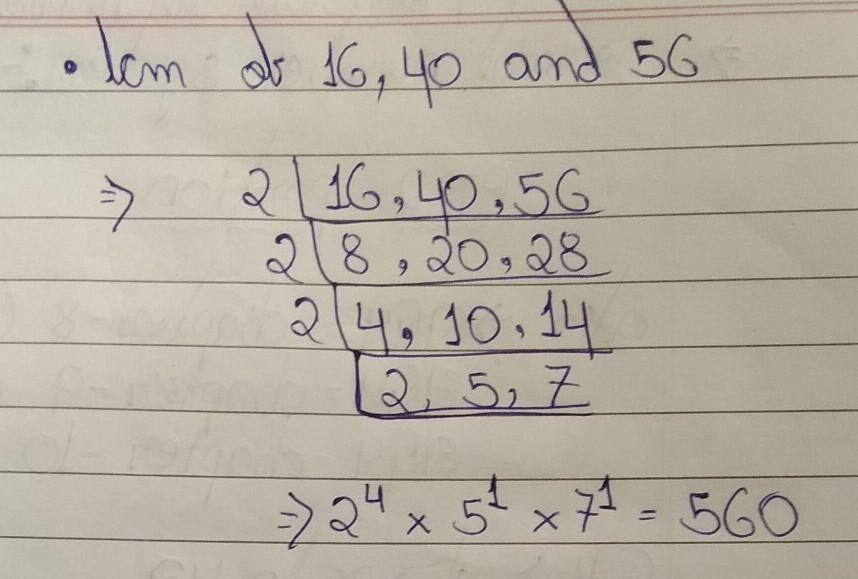 • lcm of 16, 40 and 56
⇒ 2 | 16, 40, 56
2 | 8, 20, 28
2 | 4, 10, 14
2, 5, 7
⇒ 2⁴ × 5¹ × 7¹ = 560